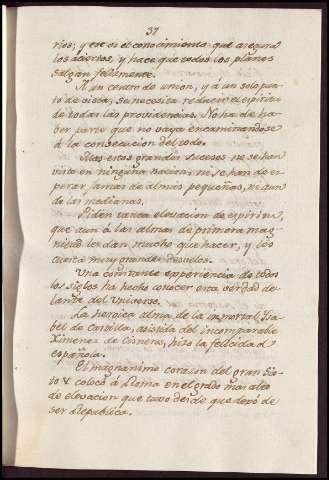 37
rios; y ese es el conocimiento que asegura
los aciertos, y hace que todos los planes
salgan felizmente.
A un centro de union, y à un solo pun-
to de vista, se necesita reducir el espiritu
de todas las providencias. No ha de ha-
ber parte que no vaya encaminandose
à la consecucion del todo.
Mas estos grandes sucesos ne se han
visto en ninguna nacion, ni se han de es-
perar jamas de almas pequeñas, ni aun
de las medianas.
Piden tanta elevacion de espiritu,
que aun à las almas de primera mag-
nitud les dan mucho que hacer, y les
cuesta muy grandes desvelos.
Una constante experiencia de todos
los siglos ha hecho conocer esta verdad de-
lante del Universo.
La heroica alma de la inmortal Isa-
bel de Castilla, asistida del incomparable
Ximenez de Cisneros, hizo la felicidad
española.
El magnánimo corazon del gran Six-
to V. colocó à Roma en el grado mas alto
de elevacion que tuvo desde que dexó de
ser Republica.